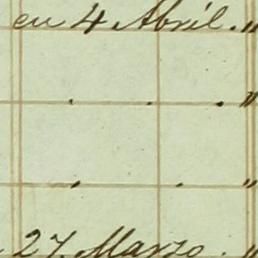 en 4 Abril. "
. . . "
. . "
27 Marzo. "